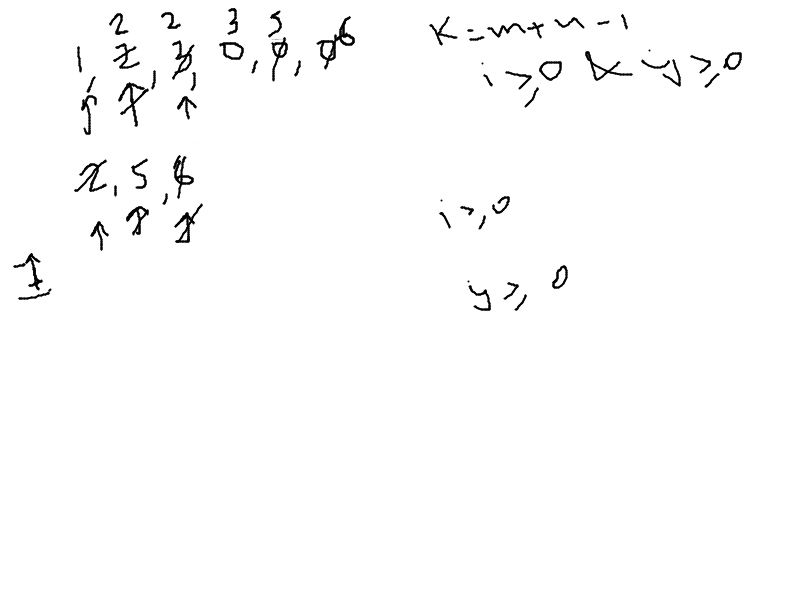 2 2 3 5
1, 2, 3, 0, 0, 0 6
2, 5, 6
K = m + n - 1
i ≥ 0 && j ≥ 0
i ≥ 0
j ≥ 0